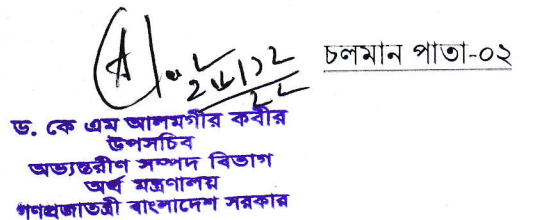 চলমান পাতা-০২
ড. কে এম আলমগীর কবীর
উপসচিব
অভ্যন্তরীণ সম্পদ বিভাগ
অর্থ মন্ত্রণালয়
গণপ্রজাতন্ত্রী বাংলাদেশ সরকার